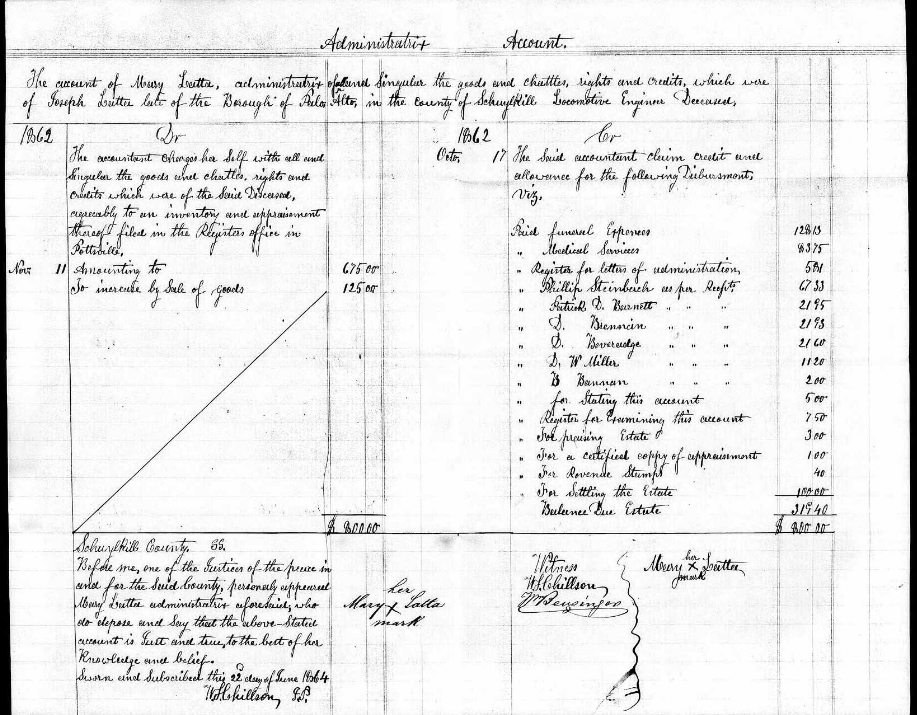 Administratrix Account.
The account of Mary Latta, administratrix of all and Singular the goods and chattles, rights and credits, which were
of Joseph Latta late of the Borough of Palo Alto, in the County of Schuylkill Locomotive Engineer Deceased,
1862 Dr
The accountant charges her Self with all and
Singular the goods and chatles, rights and
credits which were of the Said Diceased,
agreeably to an inventory and appraisment
thereof filed in the Registers office in
Pottsville,
Nov. 11 Amounting to 675 00
To increase by Sale of goods 125 00
$ 800 00
1862 Cr
Octo. 17 The Said accountant claim credit and
allowance for the following Disbursment,
Viz,
Paid funeral Expences 128 13
" Medical Services 83 75
" Register for letters of administration, 5
" Phillip Steinbach as per Recpt. 67 33
" Patrick D. Barnett " " " 21 95
" D. Brennan " " " 21 93
" D. Beveridge " " " 21 60
" D. W Miller " " " 11 20
" B Bannan " " " 2 00
" for Stating this account 5 00
" Register for Examining this account 7 50
" For praising Estate 3 00
" For a certified coppy of appraisment 1 00
" For Revenue Stumps 40
" For Settling the Estate 100 00
Balance Due Estate 319 40
$ 800 00
Schuylkill County. SS.
Before me, one of the Justices of the peace in
and for the Said County, personaly appeared
Mary Latta administratrix aforesaid, who
do depose and Say that the above-Stated
account is Just and true, to the best of her
Knowledge and belief.
Sworn and Subscribed this 22 day of June 1864
W.S. Chillson, J.P.
her
Mary X Latta
mark
Witness
W.S. Chillson
Bensinger
her
Mary X Latta
mark